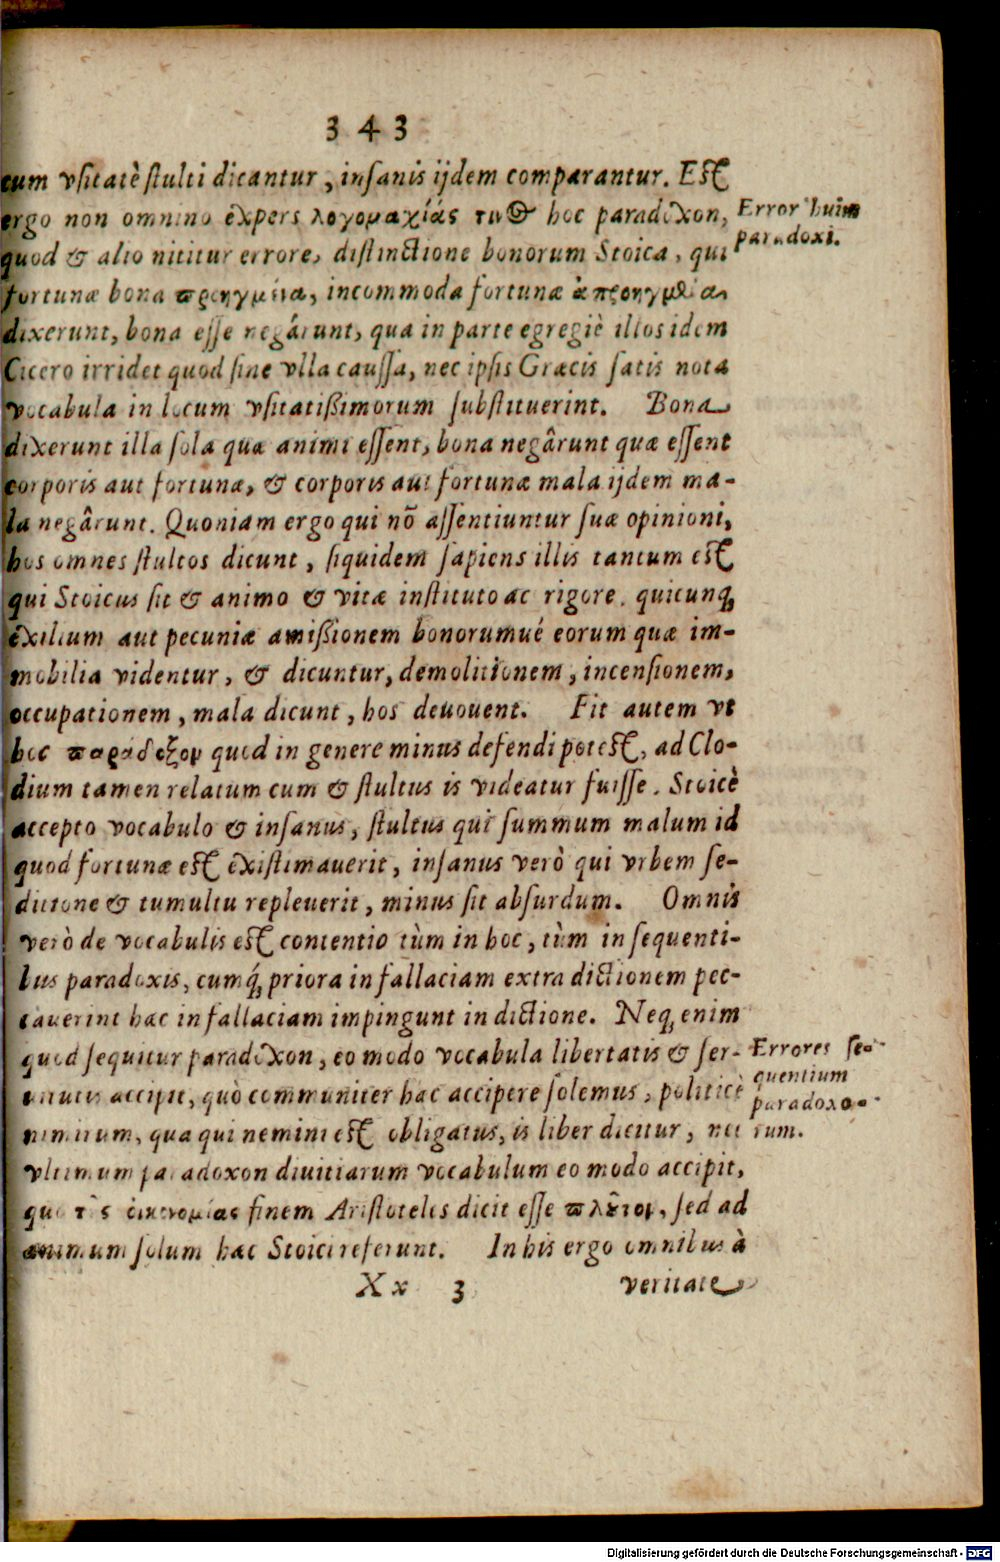 343
cum vſitatè ſtulti dicantur, inſanis ijdem comparantur. Eſt
ergo non omnino expers λογομαχίας hoc paradoxon,
Error huius
paradoxi.
quod & alio nititur errore, diſtinctione bonorum Stoica, qui
fortunæ bona προηγμένα, incommoda fortunæ
dixerunt, bona eſſe negârunt, qua in parte egregiè illos idem
Cicero irridet quod ſine vlla cauſſa, nec ipſis Græcis ſatis nota
vocabula in locum vſitatißimorum ſubſtituerint. Bona
dixerunt illa ſola quæ animi eſſent, bona negârunt quæ eſſent
corporis aut fortunæ, & corporis aut fortunæ mala ijdem ma-
la negârunt. Quoniam ergo qui nõ aſſentiuntur ſuæ opinioni,
hos omnes ſtultos dicunt, ſiquidem ſapiens illis tantum eſt
qui Stoicus ſit & animo & vitæ inſtituto ac rigore. quicunq́;
exilium aut pecuniæ amißionem bonorumué eorum quæ im-
mobilia videntur, & dicuntur, demolitionem, incenſionem,
occupationem, mala dicunt, hos deuouent. Fit autem vt
hoc παράδοξον quod in genere minus defendi poteſt, ad Clo-
dium tamen relatum cum & ſtultus is videatur fuiſſe. Stoicè
accepto vocabulo & inſanus, ſtultus qui ſummum malum id
quod fortunæ eſt exiſtimauerit, inſanus verò qui vrbem ſe-
ditione & tumultu repleuerit, minus ſit abſurdum. Omnis
verò de vocabulis eſt contentio tùm in hoc, tùm in ſequenti-
bus paradoxis, cumq́; priora in fallaciam extra dictionem pec-
cauerint hæc in fallaciam impingunt in dictione. Neq; enim
quod ſequitur paradoxon, eo modo vocabula libertatis & ſer-
Errores ſe-
quentium
paradoxo-
rum.
uitutis accipit, quò communiter hæc accipere ſolemus, politicè
nimirum, qua qui nemini eſt obligatus, is liber dicitur, nec
vltimum paradoxon diuitiarum vocabulum eo modo accipit,
quo τῆς οἰκονομίας finem Ariſtoteles dicit eſſe πλοῦτον, ſed ad
animum ſolum hæc Stoici referunt. In his ergo omnibus à
Xx 3
veritate
Digitalisierung gefördert durch die Deutsche Forschungsgemeinschaft - DFG